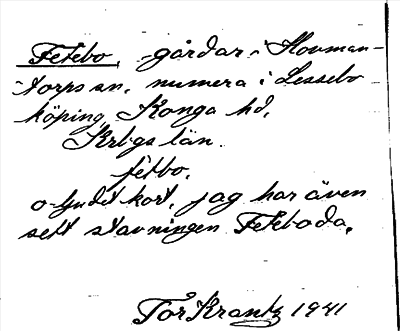 Fetebo, gårdar i Hovman-
torps sn, numera i Lessebo
köping, Konga hd,
Krbgs län.
fetbo.
o-ljudet kort, jag har även
sett stavningen Feteboda.
Tor Krantz 1941